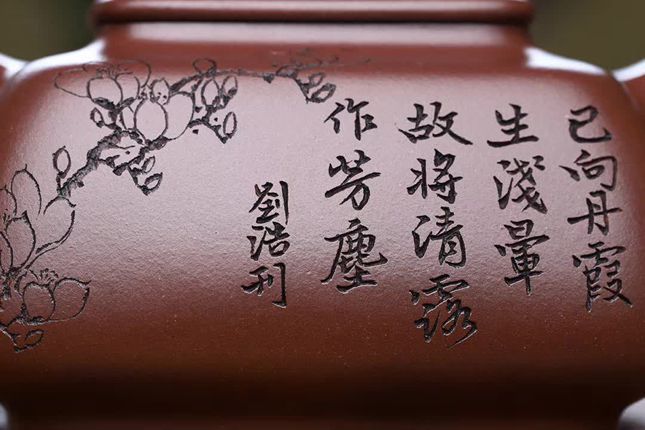 已向丹霞
生淺暈
故將清露
作芳塵
劉浩刊